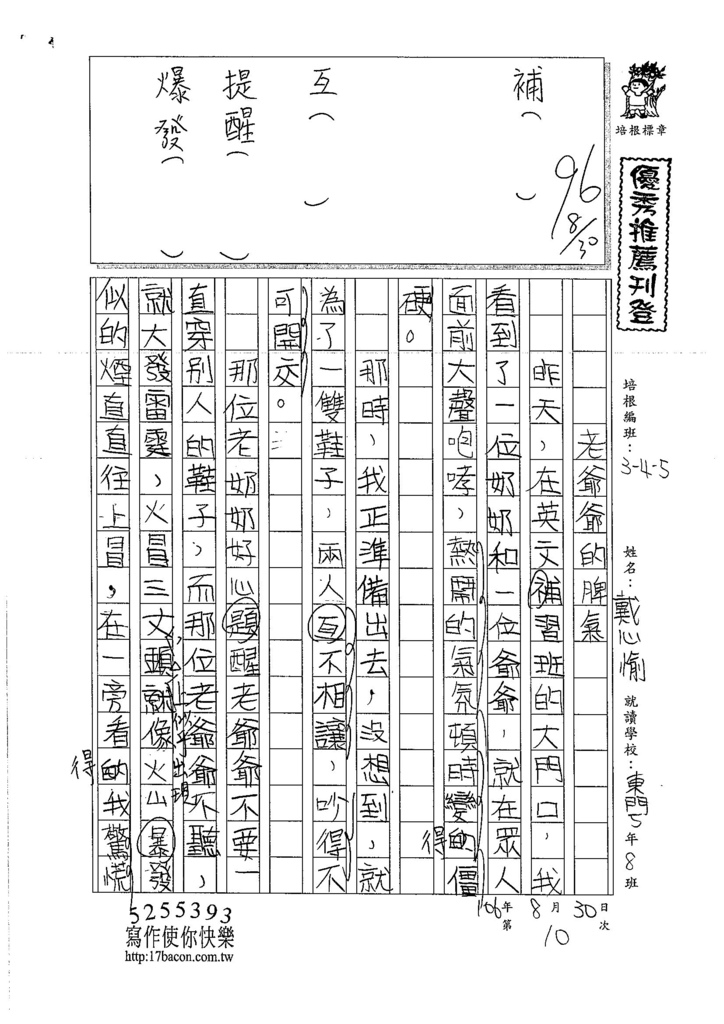 培根標章
優秀推薦刊登
培根編班：3-4-5
姓名：戴心愉
就讀學校：東門5年8班
106年8月30日
第10次
補（ ）
互（ ）
提醒（ ）
爆發（ ）
96
8/30
老爺爺的脾氣
昨天，在英文補習班的大門口，我
看到了一位奶奶和一位爺爺，就在眾人
面前大聲咆哮，熱鬧的氣氛頓時變的僵
得
硬。
那時，我正準備出去，沒想到，就
為了一雙鞋子，兩人互不相讓，吵得不
可開交。
那位老奶奶好心題醒老爺爺不要一
直穿別人的鞋子，而那位老爺爺不聽，
就大發雷霆，火冒三丈，頭就像火山暴發
上似乎出現
似的煙直直往上冒，在一旁看的我驚慌
得
5255393
寫作使你快樂
http:17bacon.com.tw